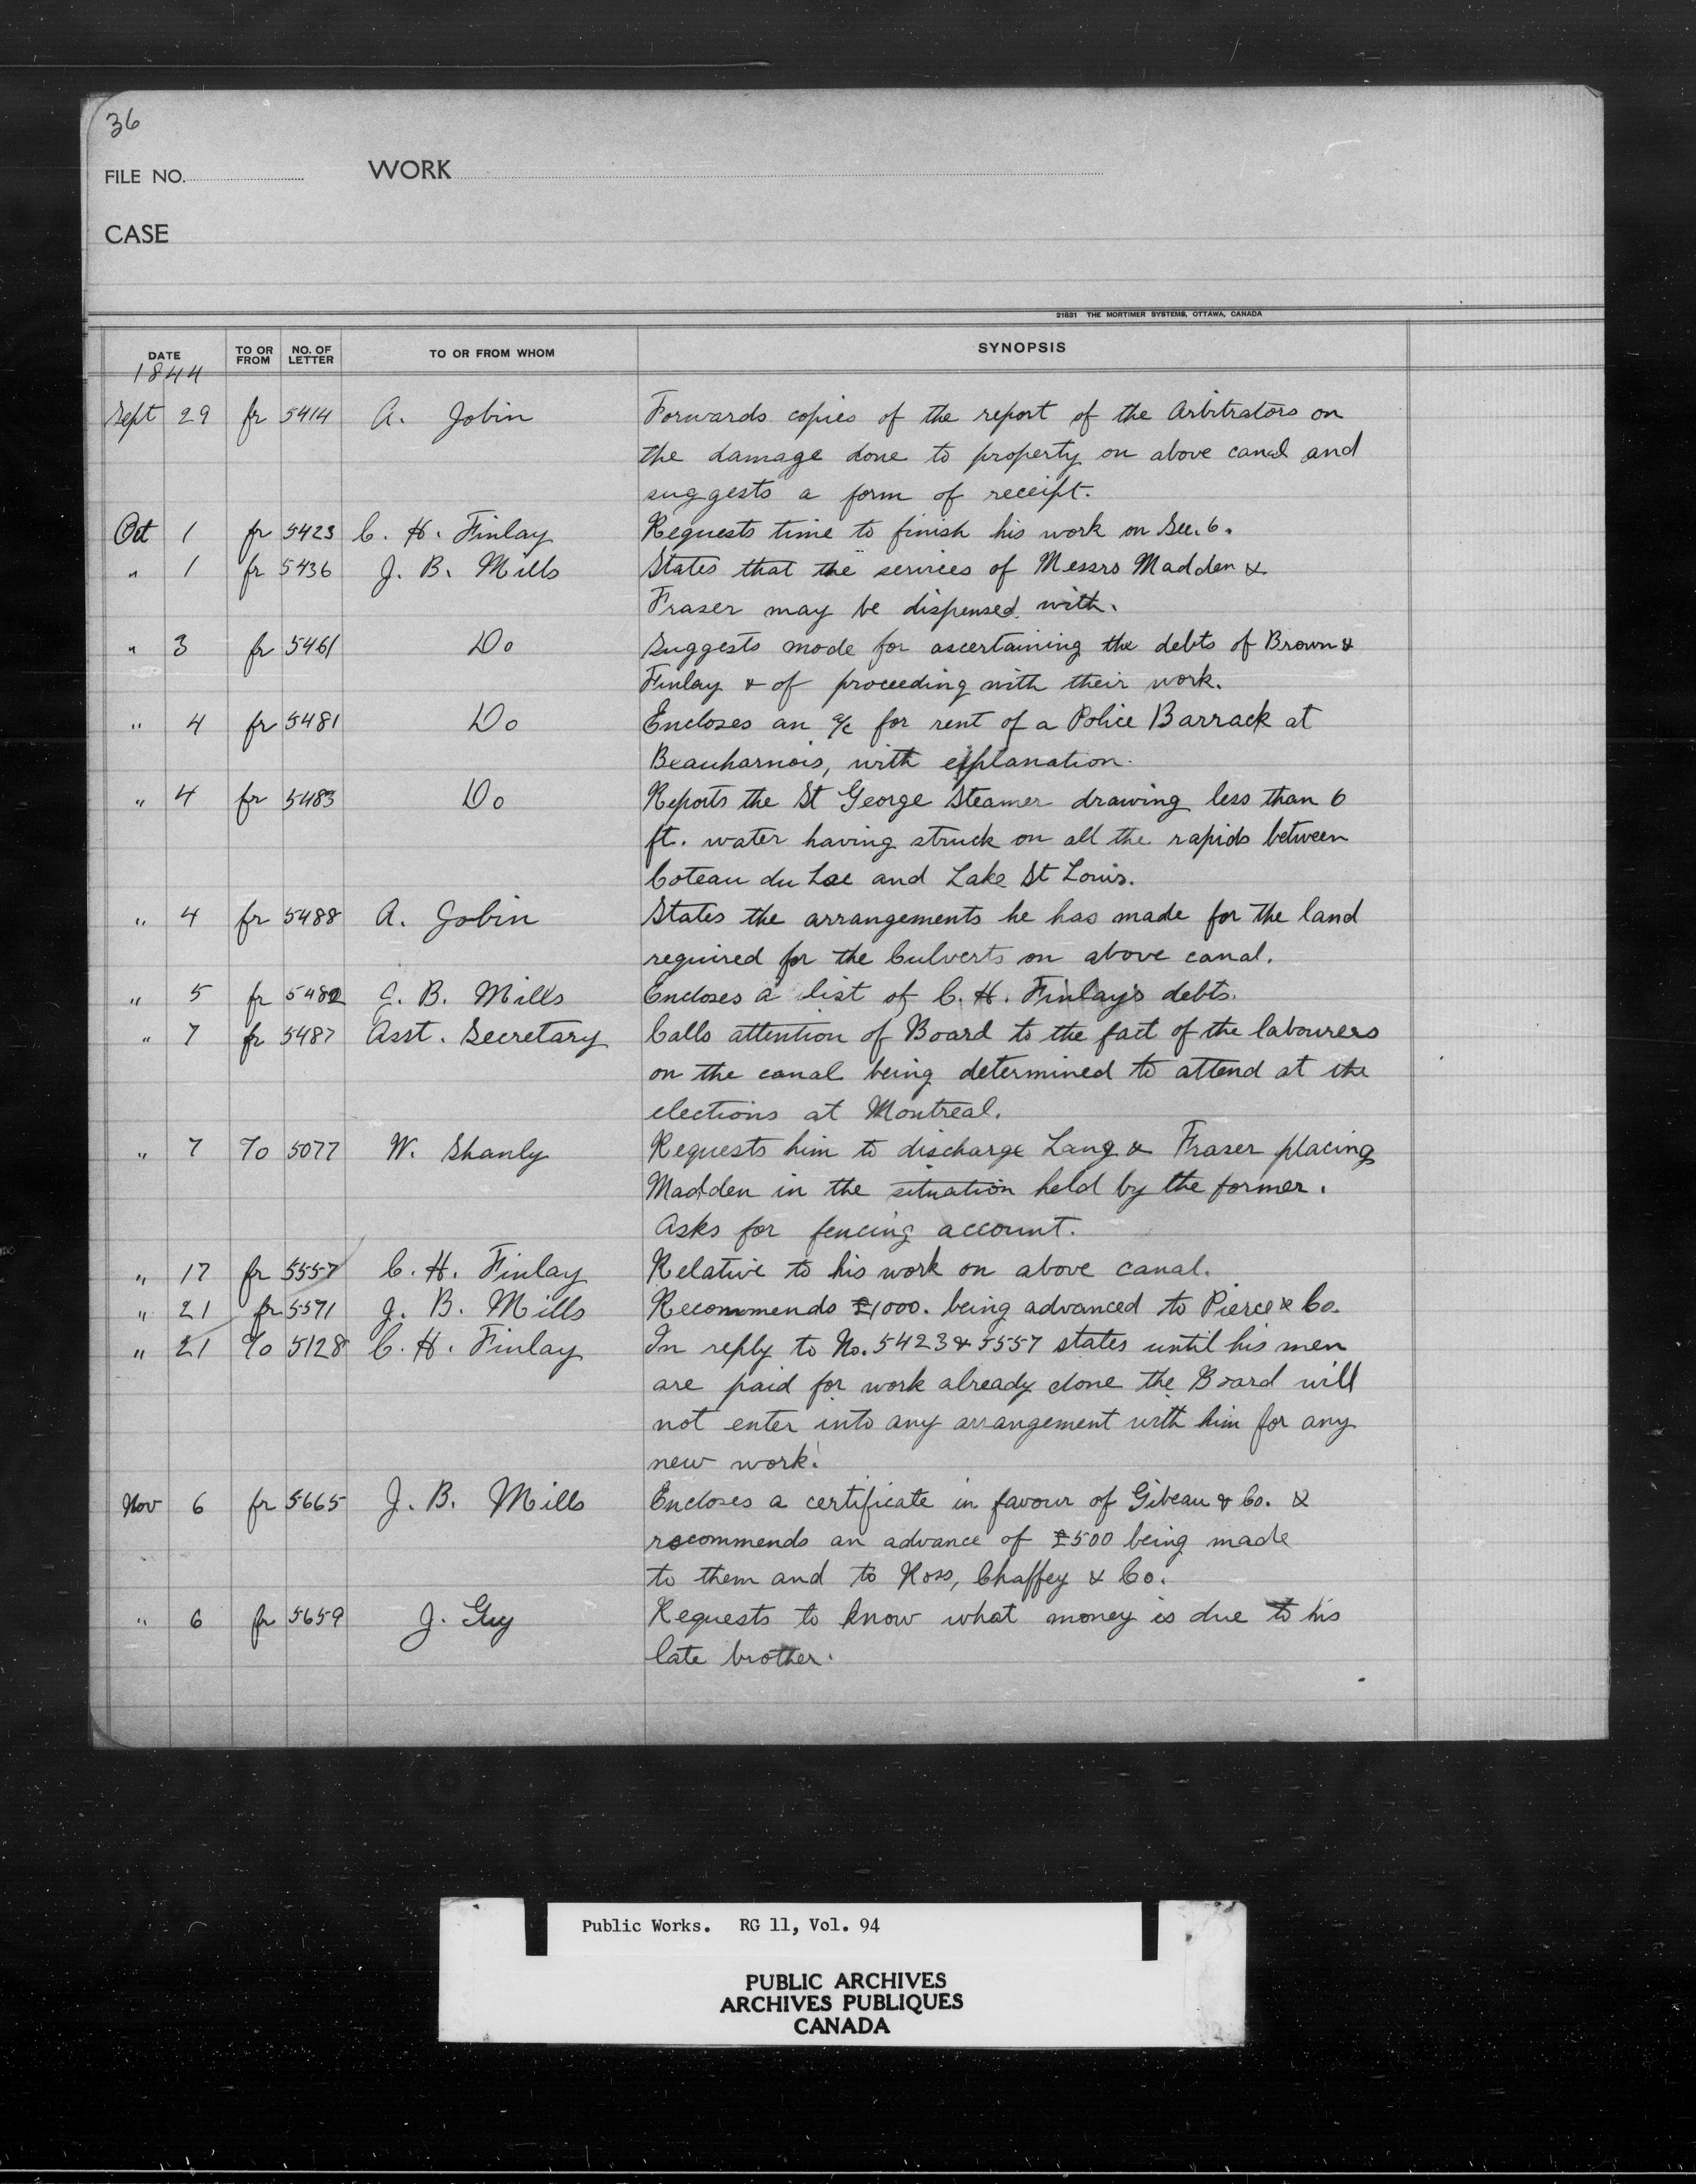 36
FILE NO. WORK
CASE
21831 THE MORTIMER SYSTEMS, OTTAWA, CANADA
DATE TO OR FROM NO. OF LETTER TO OR FROM WHOM SYNOPSIS
1844
Sept 29 fr 5414 A. Jobin Forwards copies of the report of the Arbitrators on
the damage done to property on above canal and
suggests a form of receipt.
Oct 1 fr 5423 C. H. Finlay Requests time to finish his work on Sec. 6.
" 1 fr 5436 J. B. Mills States that the services of Messrs Madden &
Fraser may be dispensed with.
" 3 fr 5461 Do Suggests mode for ascertaining the debts of Brown &
Finlay & of proceeding with their work.
" 4 fr 5481 Do Encloses an a/c for rent of a Police Barrack at
Beauharnois, with explanation.
" 4 fr 5483 Do Reports the St George Steamer drawing less than 6
ft. water having struck on all the rapids between
Coteau du Lac and Lake St Louis.
" 4 fr 5488 A. Jobin States the arrangements he has made for the land
required for the Culverts on above canal.
" 5 fr 5482 J. B. Mills Encloses a list of C. H. Finlay's debts.
" 7 fr 5487 Asst. Secretary Calls attention of Board to the fact of the labourers
on the canal being determined to attend at the
elections at Montreal.
" 7 To 5077 W. Shanly Requests him to discharge Lang & Fraser placing
Madden in the situation held by the former.
Asks for fencing account.
" 17 fr 5557 C. H. Finlay Relative to his work on above canal.
" 21 fr 5571 J. B. Mills Recommends £1000. being advanced to Pierce & Co.
" 21 To 5128 C. H. Finlay In reply to No. 5423 & 5557 states until his men
are paid for work already done the Board will
not enter into any arrangement with him for any
new work.
Nov 6 fr 5665 J. B. Mills Encloses a certificate in favour of Gibeau & Co. &
recommends an advance of £500 being made
to them and to Ross, Chaffey & Co.
" 6 fr 5659 J. Guy Requests to know what money is due to his
late brother.
Public Works. RG 11, Vol. 94
PUBLIC ARCHIVES
ARCHIVES PUBLIQUES
CANADA